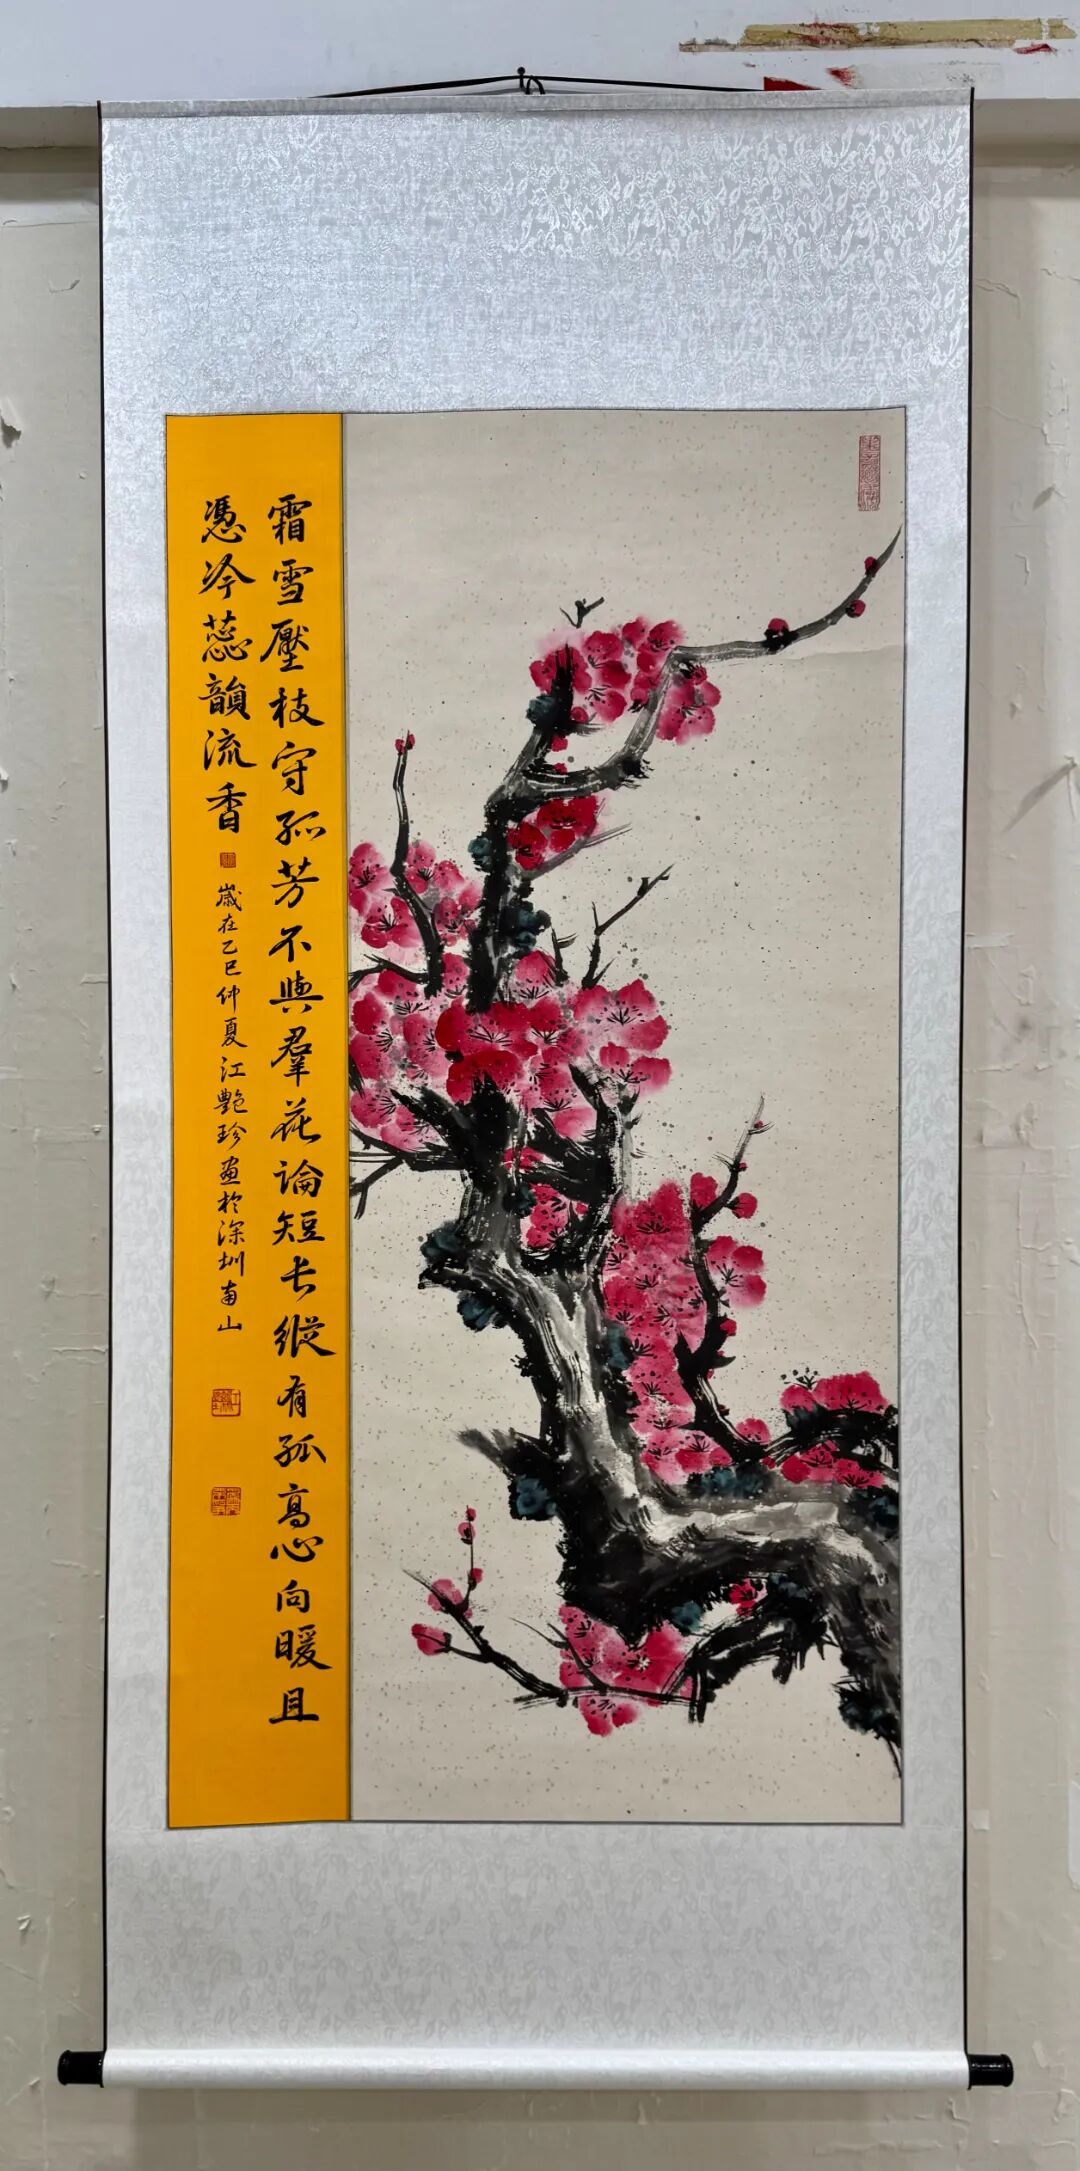 霜雪壓枝守孤芳不與羣花論短長縱有孤高心向暖且
憑冷蕊韻流香
歲在乙巳仲夏江艷珍画於深圳南山